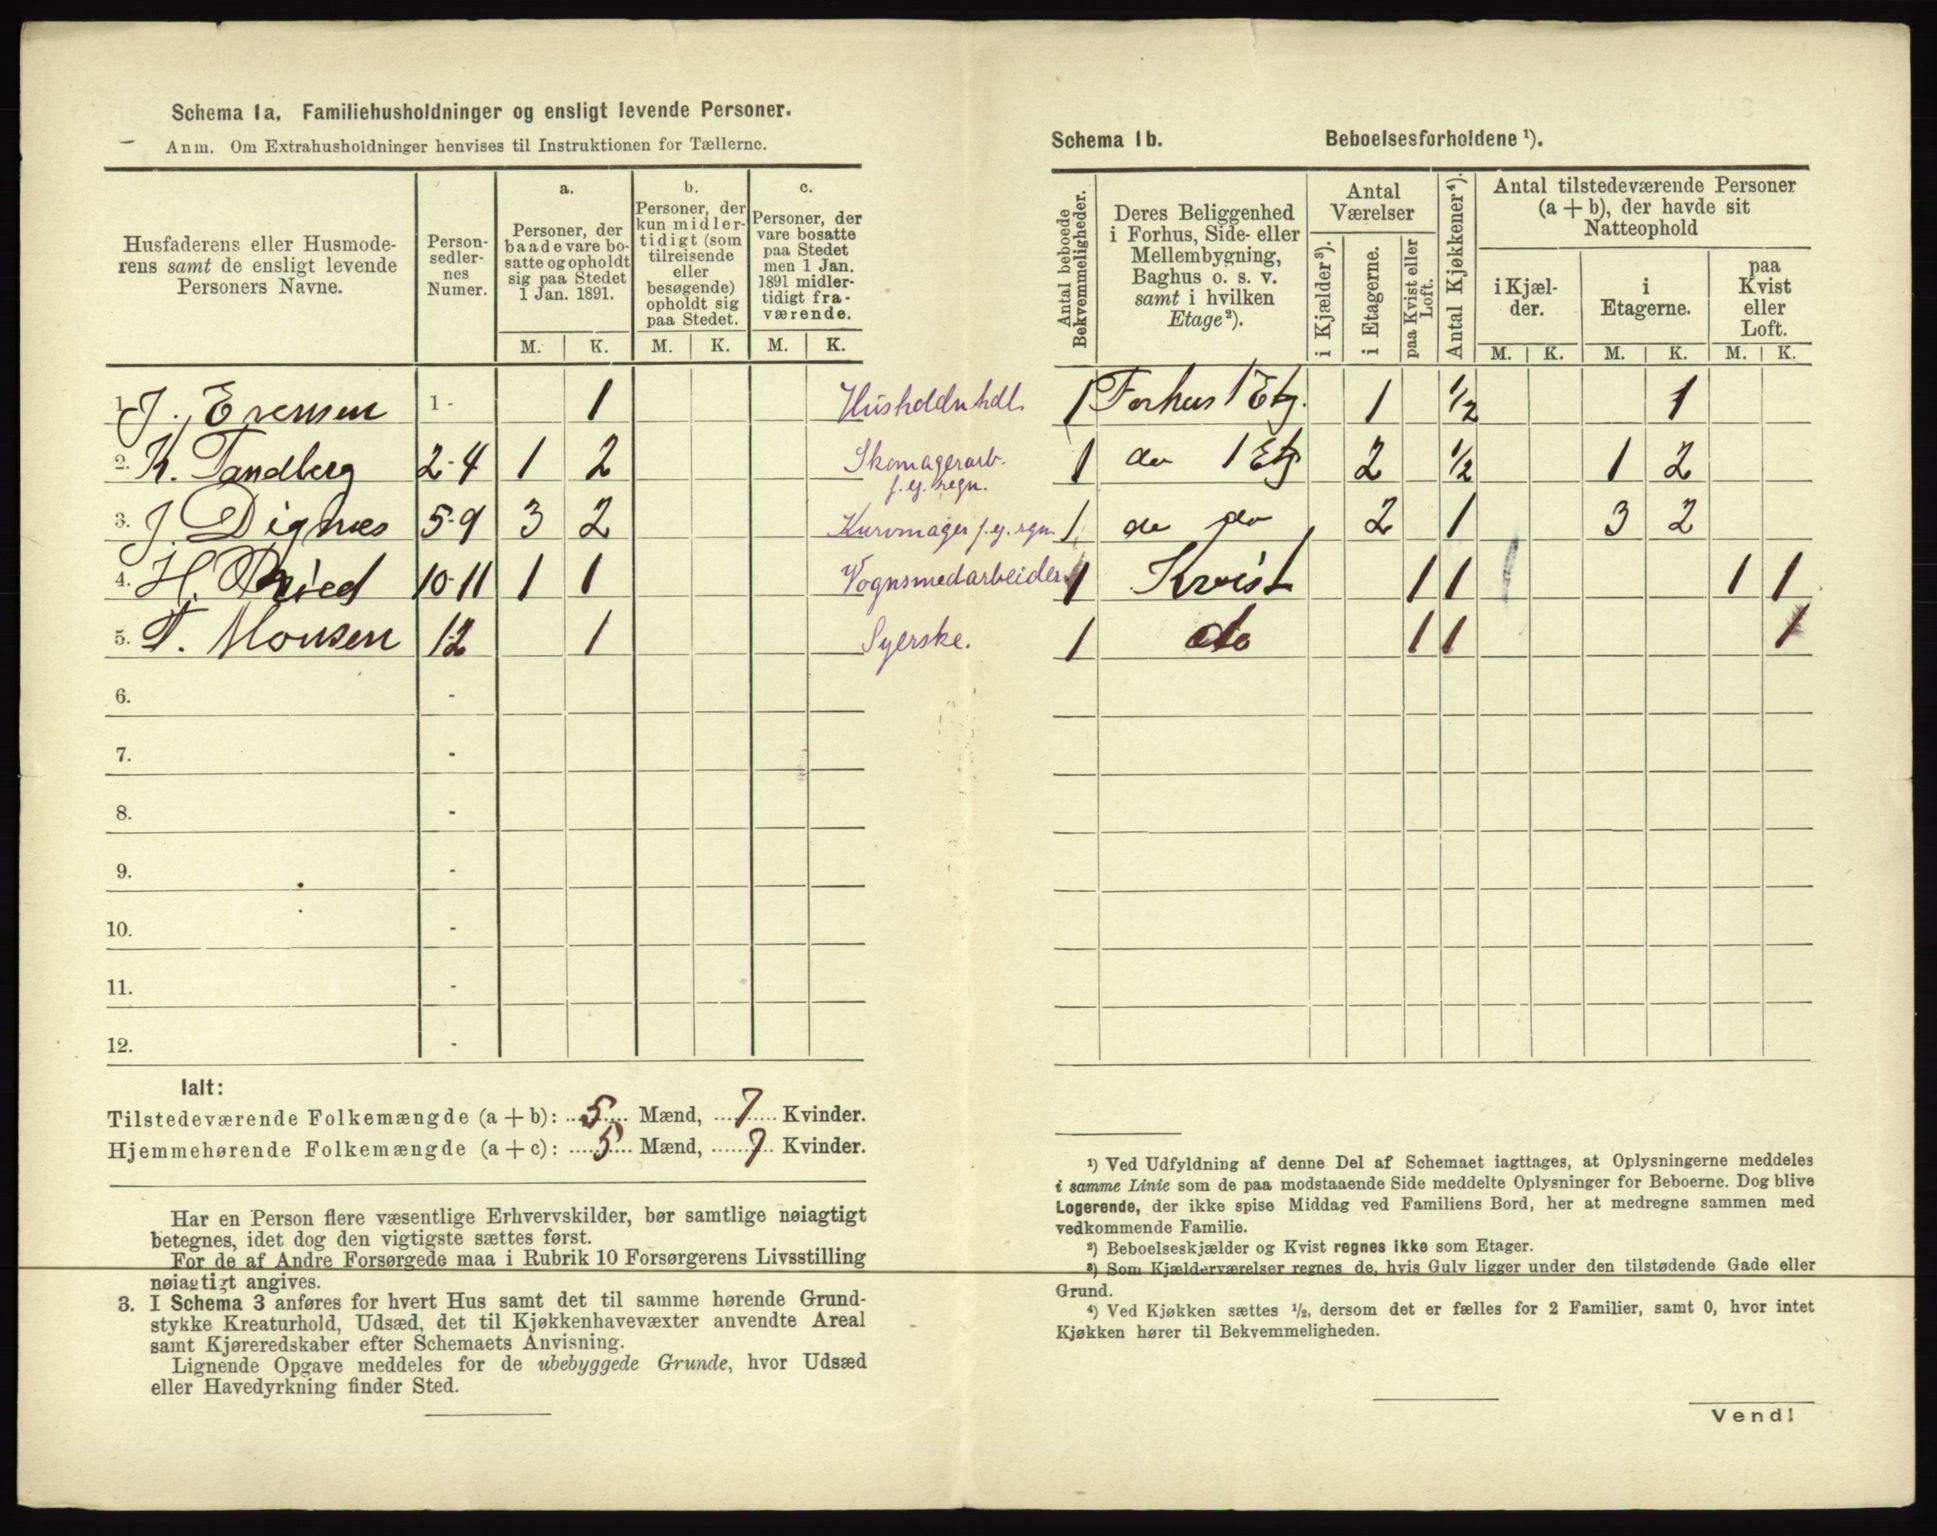 Schema 1a. Familiehusholdninger og ensligt levende Personer.
Anm. Om Extrahusholdninger henvises til Instruktionen for Tællerne.
Husfaderens eller Husmode-
rens samt de ensligt levende
Personers Navne.
Person-
sedler-
nes
Numer.
a.
Personer, der
baade vare bo-
satte og opholdt
sig paa Stedet
1 Jan. 1891.
b.
Personer, der
kun midler-
tidigt (som
tilreisende
eller
besøgende)
opholdt sig
paa Stedet.
c.
Personer, der
vare bosatte
paa Stedet
men 1 Jan.
1891 midler-
tidigt fra-
værende.
M. K. M. K. M. K.
1. J. Evensen 1- 1 Husholdn hdl.
2. K. Tandberg 2-4 1 2 Skomagerarb.
f. eg. regn.
3. J. Dignæs 5-9 3 2 Kurvmager f. eg. regn.
4. H. Ried 10-11 1 1 Vognsmedarbeider
5. T. Monsen 12 1 Syerske.
6. -
7. -
8. -
9. -
10. -
11. -
12. -
Ialt:
Tilstedeværende Folkemængde (a + b): 5 Mænd, 7 Kvinder.
Hjemmehørende Folkemængde (a + c): 5 Mænd, 7 Kvinder.
Har en Person flere væsentlige Erhvervskilder, bør samtlige nøiagtigt
betegnes, idet dog den vigtigste sættes først.
For de af Andre Forsørgede maa i Rubrik 10 Forsørgerens Livsstilling
nøiagtigt angives.
3. I Schema 3 anføres for hvert Hus samt det til samme hørende Grund-
stykke Kreaturhold, Udsæd, det til Kjøkkenhavevæxter anvendte Areal
samt Kjøreredskaber efter Schemaets Anvisning.
Lignende Opgave meddeles for de ubebyggede Grunde, hvor Udsæd
eller Havedyrkning finder Sted.
Schema 1b. Beboelsesforholdene ¹).
Antal beboede
Bekvemmeligheder.
Deres Beliggenhed
i Forhus, Side- eller
Mellembygning,
Baghus o. s. v.
samt i hvilken
Etage²).
Antal
Værelser
i Kjælder³).
i Etagerne.
paa Kvist eller
Loft.
Antal Kjøkkener⁴).
Antal tilstedeværende Personer
(a + b), der havde sit
Natteophold
i Kjæl-
der.
i
Etagerne.
paa
Kvist
eller
Loft.
M. K. M. K. M. K.
1 Forhus 1 Etg. 1 ½ 1
1 do 1 Etg 2 ½ 1 2
1 do do 2 1 3 2
1 Kvist 1 1 1 1
1 do 1 1 1
¹) Ved Udfyldning af denne Del af Schemaet iagttages, at Oplysningerne meddeles
i samme Linie som de paa modstaaende Side meddelte Oplysninger for Beboerne. Dog blive
Logerende, der ikke spise Middag ved Familiens Bord, her at medregne sammen med
vedkommende Familie.
²) Beboelseskjælder og Kvist regnes ikke som Etager.
³) Som Kjælderværelser regnes de, hvis Gulv ligger under den tilstødende Gade eller
Grund.
⁴) Ved Kjøkken sættes ½, dersom det er fælles for 2 Familier, samt 0, hvor intet
Kjøkken hører til Bekvemmeligheden.
Vend!